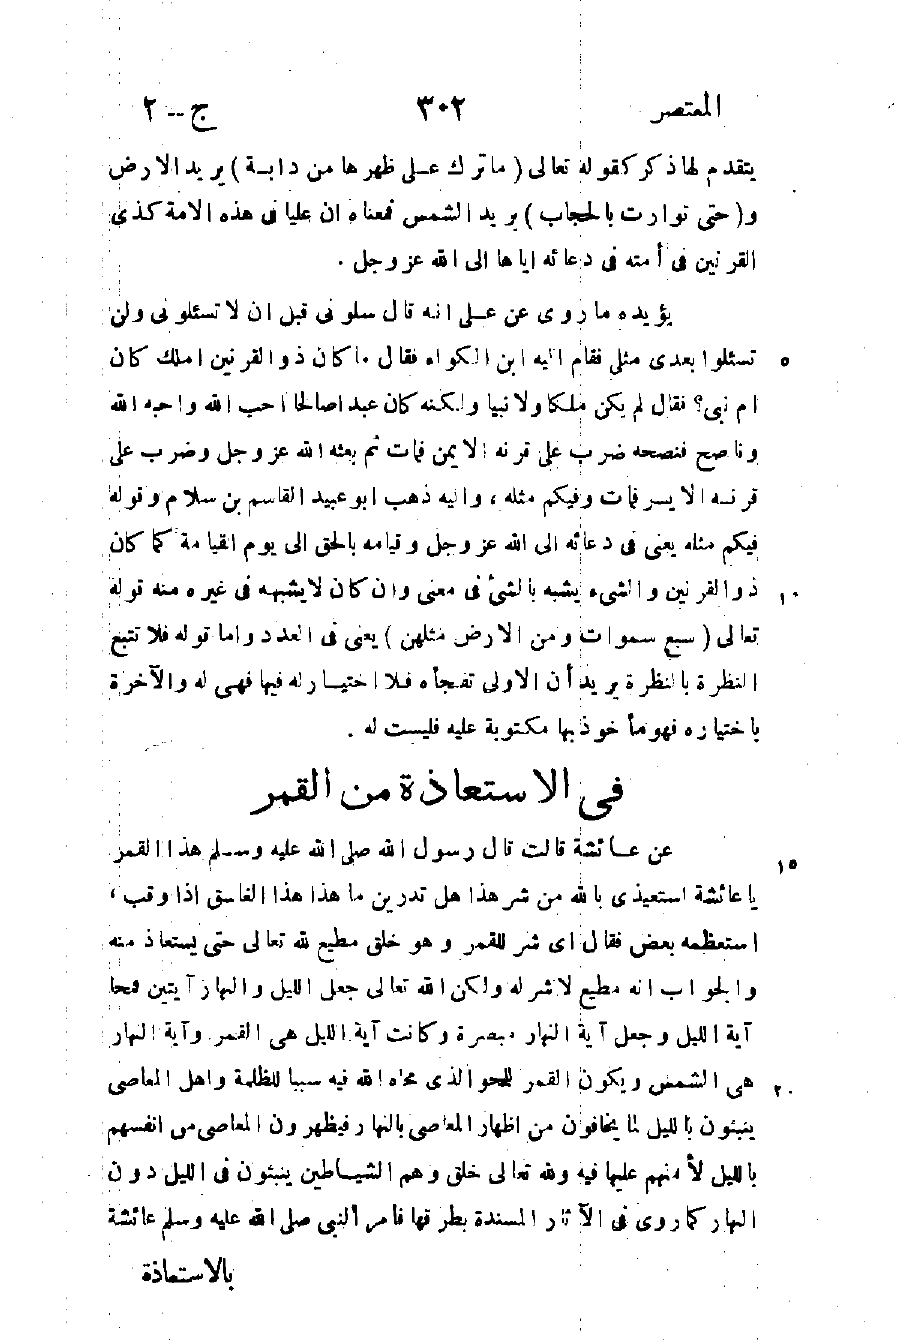 المعتصر ٣٠٢ ج -- ٢
يتقدم لها ذكر كقوله تعالى ( ماترك على ظهرها من دابة ) يريد الارض
و( حتى توارت بالحجاب ) يريد الشمس فمعناه ان عليا فى هذه الامة كذى
القرنين فى أمته فى دعائه اياها الى الله عز وجل .
يؤيده ما روى عن على انه قال سلونى قبل ان لا تسئلونى ولن
٥ تسئلوا بعدى مثلى فقام اليه ابن الكواء فقال ما كان ذوالقرنين املك كان
ام نبى؟ فقال لم يكن ملكا ولا نبيا ولكنه كان عبدا صالحا احب الله واحبه الله
وناصح فنصحه ضرب على قرنه الايمن فمات ثم بعثه الله عز وجل وضرب على
قرنه الايسر فمات وفيكم مثله ، واليه ذهب ابوعبيد القاسم بن سلام وقوله
فيكم مثله يعنى فى دعائه الى الله عز وجل وقيامه بالحق الى يوم القيامة كما كان
١٠ ذوالقرنين والشىء يشبه بالشئ فى معنى وان كان لايشبهه فى غيره منه قوله
تعالى ( سبع سموات ومن الارض مثلهن ) يعنى فى العدد واما قوله فلا تتبع
النظرة بالنظرة يريد أن الاولى تفجأه فلا اختيار له فيها فهى له والآخرة
باختياره فهو مأخوذ بها مكتوبة عليه فليست له .
فى الاستعاذة من القمر
١٥ عن عائشة قالت قال رسول الله صلى الله عليه وسلم هذا القمر
يا عائشة استعيذى بالله من شر هذا هل تدرين ما هذا هذا الغاسق اذا وقب ،
استعظمه بعض فقال اى شر للقمر و هو خلق مطيع لله تعالى حتى يستعاذ منه
والجواب انه مطيع لاشر له ولكن الله تعالى جعل الليل والنهار آيتين فمحا
آية الليل وجعل آية النهار مبصرة وكانت آية الليل هى القمر وآية النهار
٢٠ هى الشمس ويكون القمر للمحو الذى محاه الله فيه سببا للظلمة واهل المعاصى
ينبثون بالليل لما يخافون من اظهار المعاصى بالنهار فيظهرون المعاصى من انفسهم
بالليل لأمنهم عليها فيه ولله تعالى خلق وهم الشياطين ينبثون فى الليل دون
النهار كما روى فى الآثار المسندة بطرقها فامر النبى صلى الله عليه وسلم عائشة
بالاستعاذة